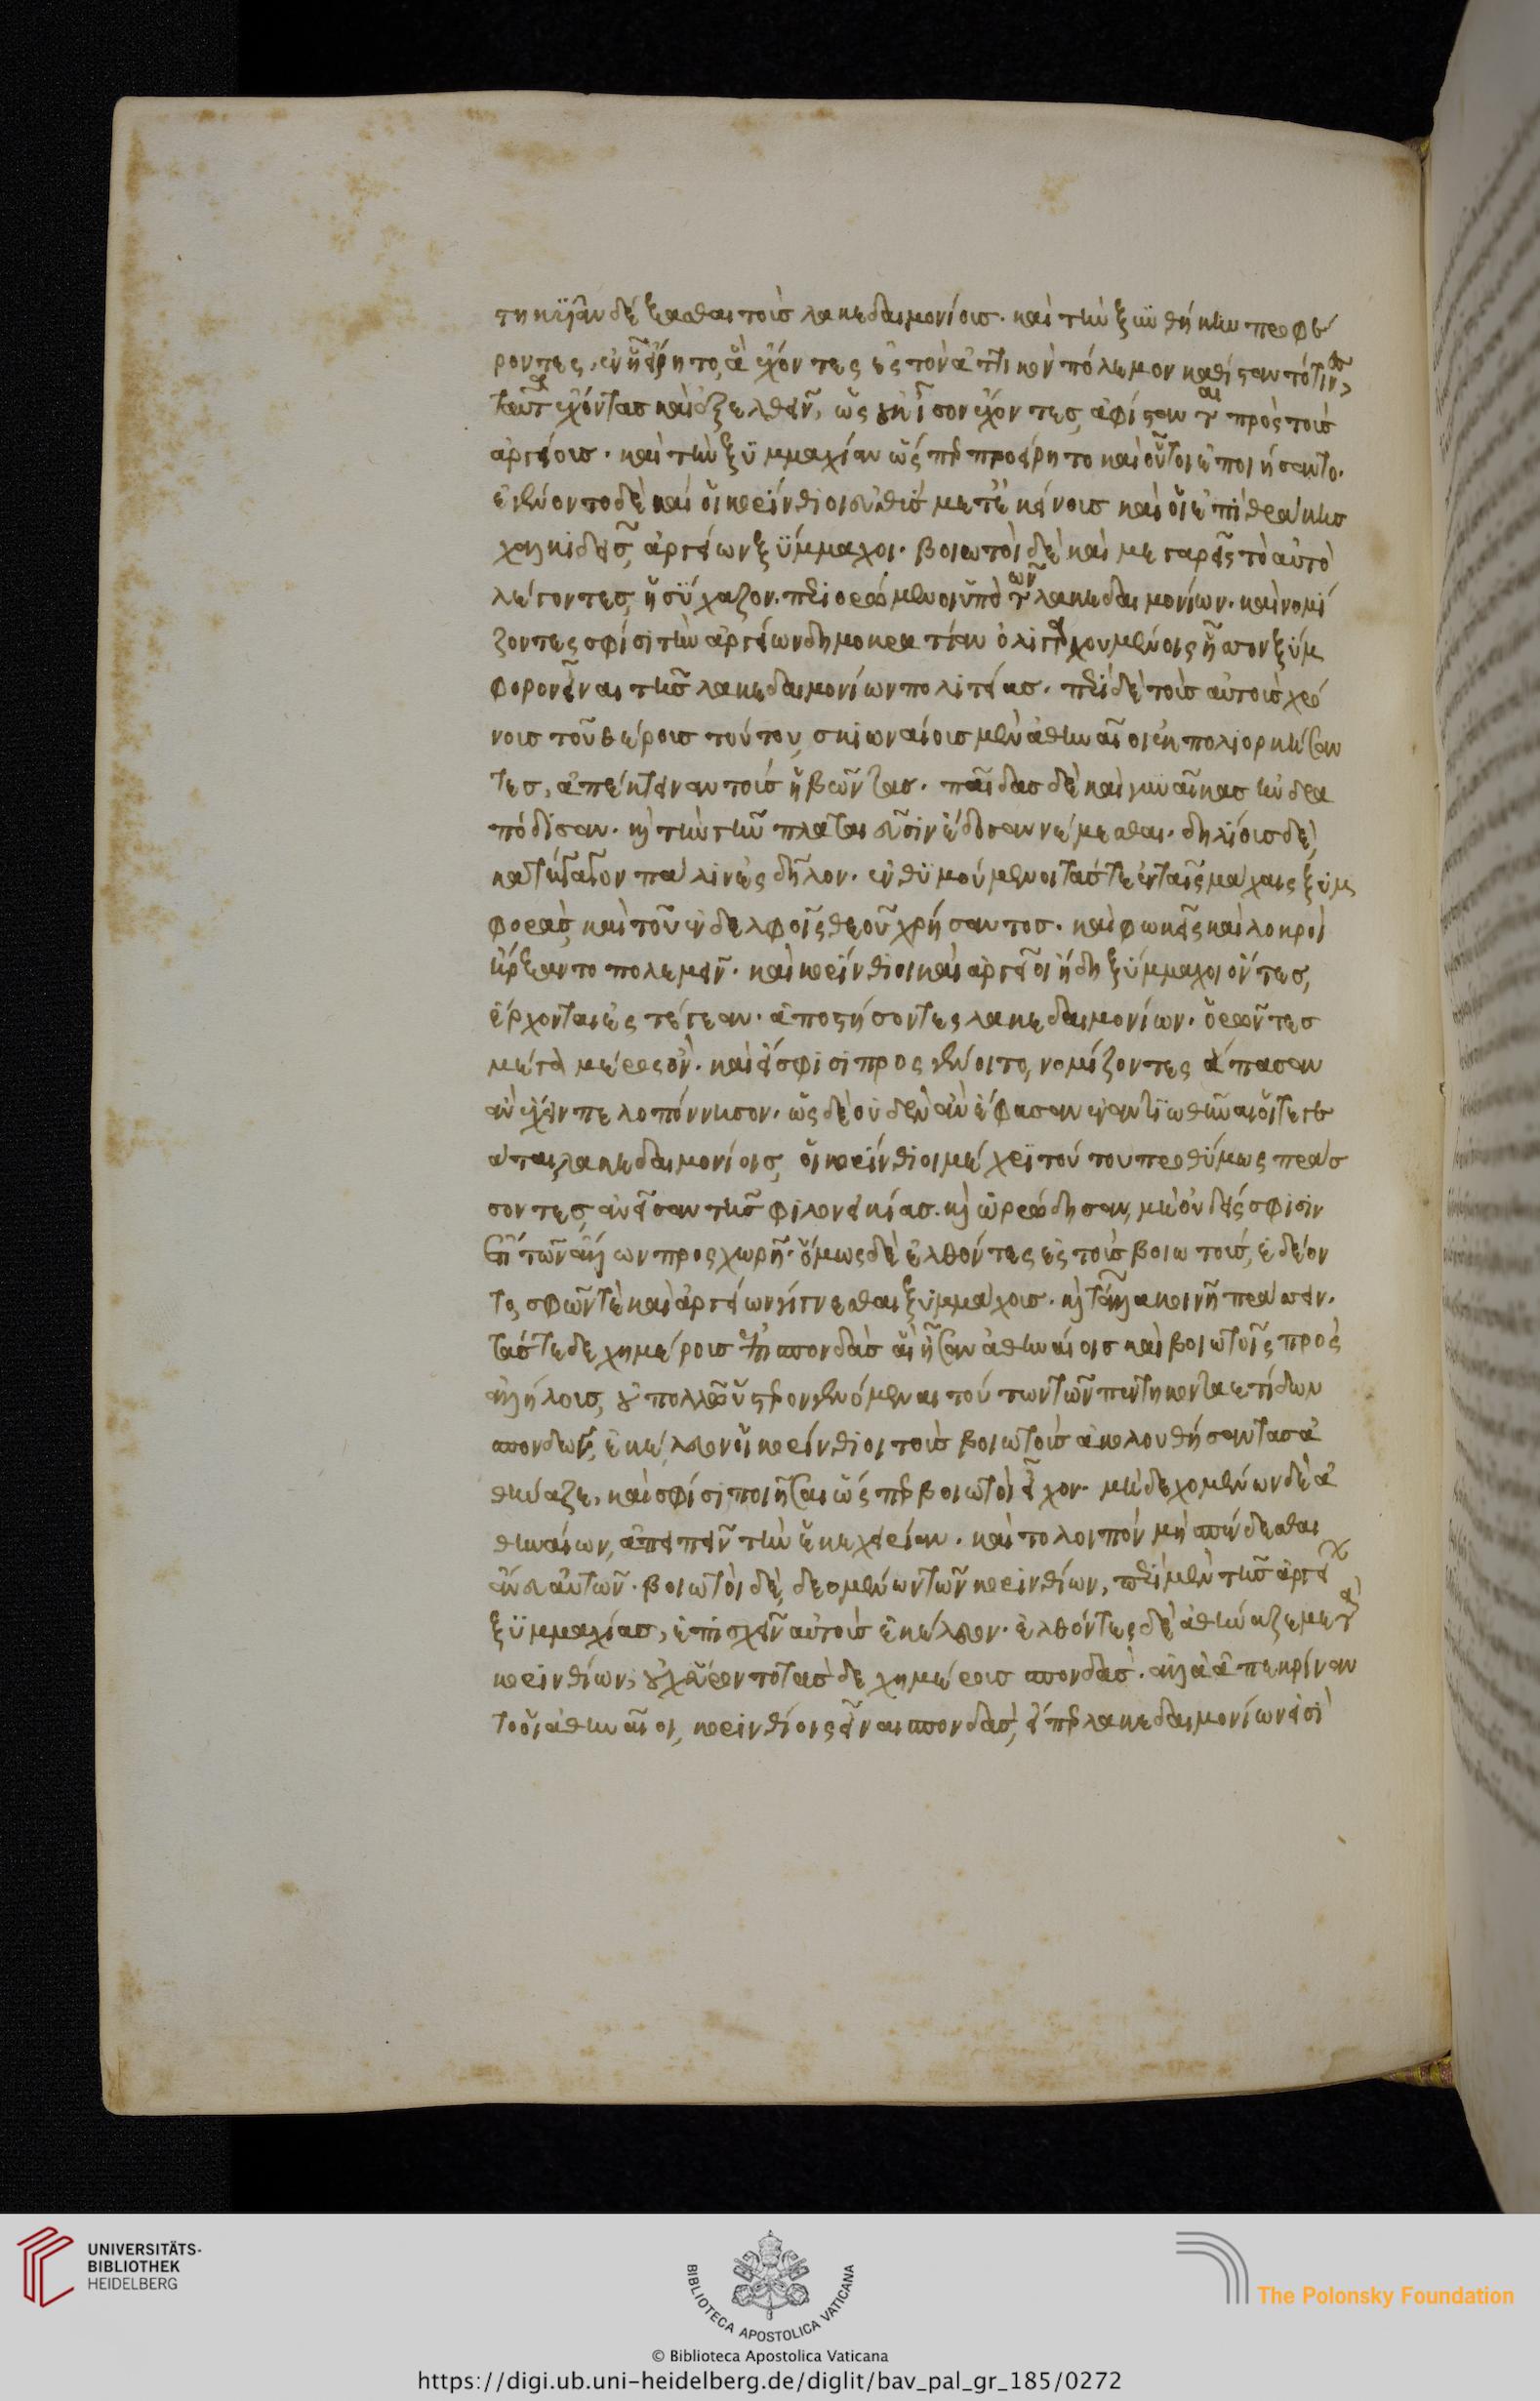 τηκυῖαν δέξασθαι τοὺς λακεδαιμονίους· καὶ τὴν ξυνθήκην προφέ
ροντες, ἐν ᾗ εἴρητο, ἃ ἔχοντες ἐς τὸν ἀττικὸν πόλεμον καθίσταντό τινες,
ταῦτα ἔχοντας καὶ ἐξελθεῖν, ὡς οὐκ ἴσον ἔχοντες, ἀφίστανται πρὸς τοὺς
ἀργείους· καὶ τὴν ξυμμαχίαν ὥσπερ προείρητο καὶ οὗτοι ἐποιήσαντο·
ἐγένοντο δὲ καὶ οἱ κορίνθιοι εὐθὺς μετ' ἐκείνους καὶ οἱ ἐπὶ θράκης
χαλκιδεῖς, ἀργείων ξύμμαχοι· βοιωτοὶ δὲ καὶ μεγαρεῖς τὸ αὐτὸ
λέγοντες, ἡσύχαζον· περιορώμενοι ὑπὸ τῶν λακεδαιμονίων· καὶ νομί
ζοντες σφίσι τὴν ἀργείων δημοκρατίαν ὀλιγαρχουμένοις ἧσσον ξύμ
φορον εἶναι τῆς λακεδαιμονίων πολιτείας· περὶ δὲ τοὺς αὐτοὺς χρό
νους τοῦ θέρους τούτου, σκιωναίους μὲν ἀθηναῖοι ἐκπολιορκήσαν
τες, ἀπέκτειναν τοὺς ἡβῶντας· παῖδας δὲ καὶ γυναῖκας ἠνδρα
πόδισαν· καὶ τὴν γῆν πλαταιεῦσιν ἔδοσαν νέμεσθαι· δηλίους δὲ
κατήγαγον πάλιν ἐς δῆλον· ἐνθυμούμενοι τάς τε ἐν ταῖς μάχαις ξυμ
φοράς, καὶ τοῦ ἐν δελφοῖς θεοῦ χρήσαντος· καὶ φωκεῖς καὶ λοκροὶ
ἤρξαντο πολεμεῖν· καὶ κορίνθιοι καὶ ἀργεῖοι ἤδη ξύμμαχοι ὄντες,
ἔρχονται ἐς τέγεαν· ἀποστήσοντες λακεδαιμονίων· ὁρῶντες
μέγα μέρος ὄν· καὶ εἰ σφίσι προσγένοιτο, νομίζοντες ἅπασαν
ἂν ἔχειν πελοπόννησον· ὡς δὲ οὐδὲν ἂν ἔφασαν ἐναντιωθῆναι οἱ τεγε
ᾶται λακεδαιμονίοις, οἱ κορίνθιοι μέχρι τούτου προθύμως πράσ
σοντες, ἀνεῖσαν τῆς φιλονεικίας· καὶ ὠρρώδησαν, μὴ οὐδεὶς σφίσιν
ἔτι τῶν ἄλλων προσχωρῇ· ὅμως δὲ ἐλθόντες ἐς τοὺς βοιωτούς, ἐδέον
το, σφῶν τε καὶ ἀργείων γίγνεσθαι ξυμμάχους· καὶ τἆλλα κοινῇ πράσσειν·
τάς τε δεχημέρους ἐπισπονδὰς αἳ ἦσαν ἀθηναίοις καὶ βοιωτοῖς πρὸς
ἀλλήλους, οὐ πολλῷ ὕστερον γενόμεναι τούτων τῶν πεντηκονταετίδων
σπονδῶν, ἐκέλευον οἱ κορίνθιοι τοὺς βοιωτοὺς ἀκολουθήσαντας ἀ
θήναζε, καὶ σφίσι ποιῆσαι ὥσπερ βοιωτοὶ εἶχον· μὴ δεχομένων δὲ ἀ
θηναίων, ἀπειπεῖν τὴν ἐκεχειρίαν· καὶ τὸ λοιπὸν μὴ σπένδεσθαι
ἄνευ αὐτῶν· βοιωτοὶ δέ, δεομένων τῶν κορινθίων, περὶ μὲν τῆς ἀργεί
ξυμμαχίας, ἐπισχεῖν αὐτοὺς ἐκέλευον· ἐλθόντες δὲ ἀθήναζε μετὰ
κορινθίων, οὐχ εὕροντο τὰς δεχημέρους σπονδάς· ἀλλὰ ἀπεκρίναν
το οἱ ἀθηναῖοι, κορινθίοις εἶναι σπονδάς, εἴπερ λακεδαιμονίων εἰσὶ
UNIVERSITÄTS-
BIBLIOTHEK
HEIDELBERG
BIBLIOTECA APOSTOLICA VATICANA
The Polonsky Foundation
© Biblioteca Apostolica Vaticana
https://digi.ub.uni-heidelberg.de/diglit/bav_pal_gr_185/0272